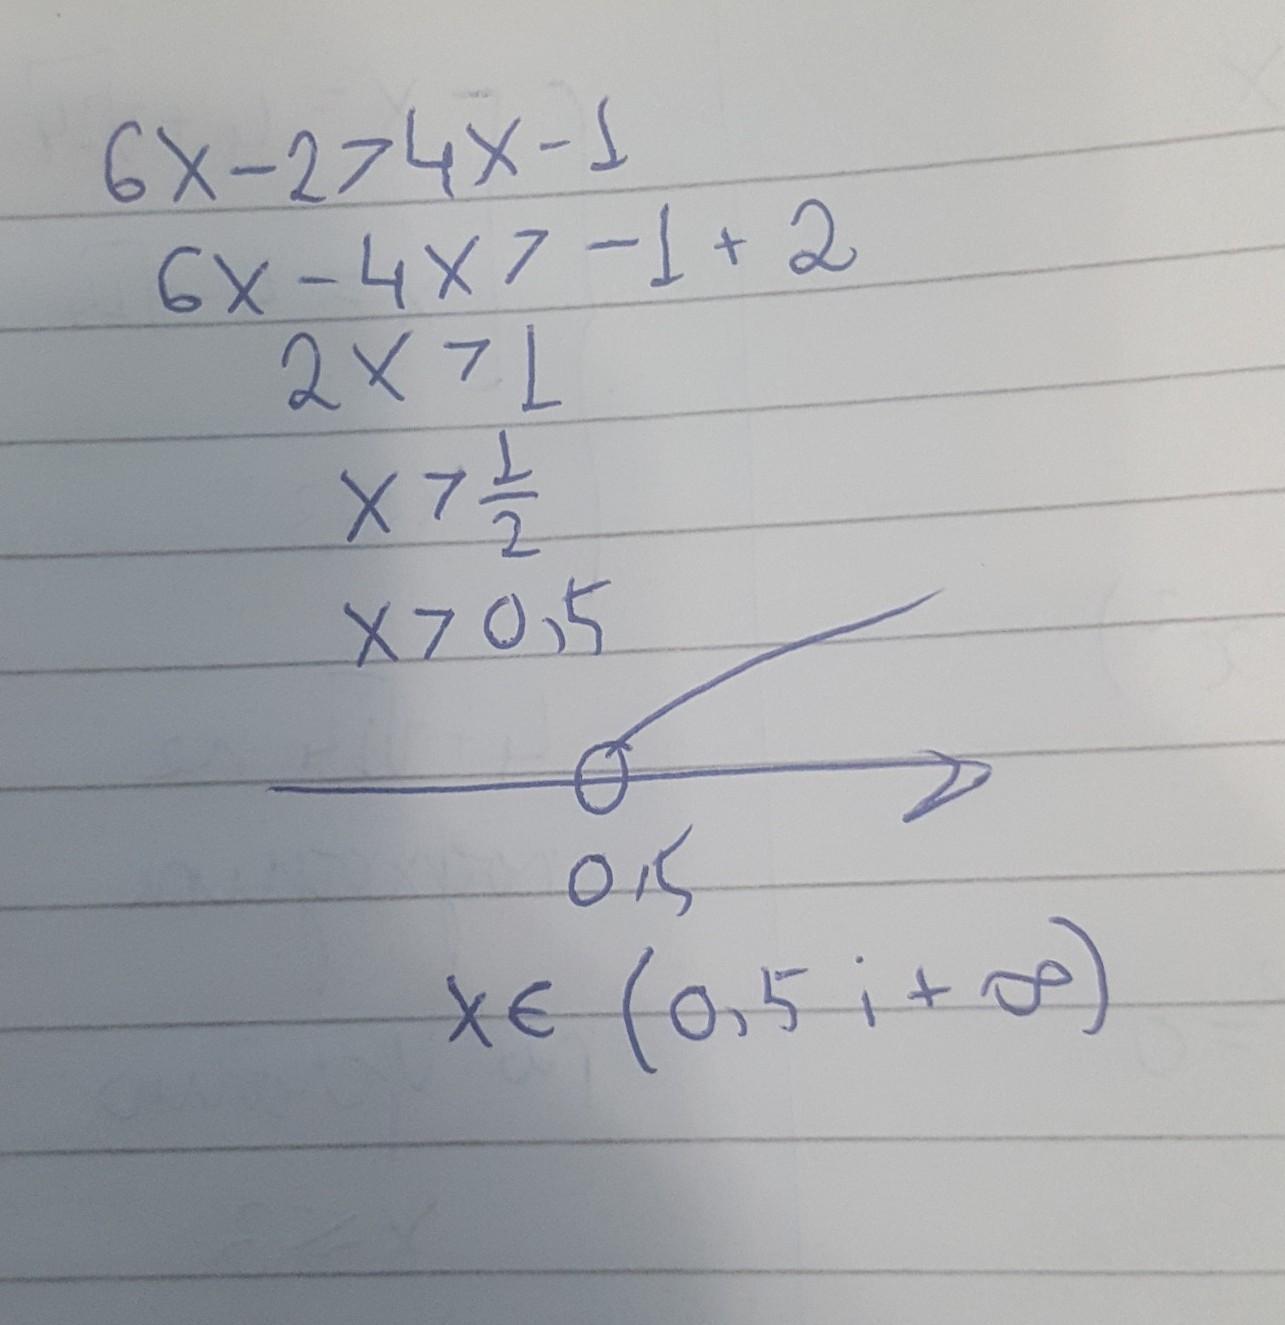 6x-2>4x-1
6x-4x>-1+2
2x>1
x>1/2
x>0,5
0,5
x∈(0,5;+∞)